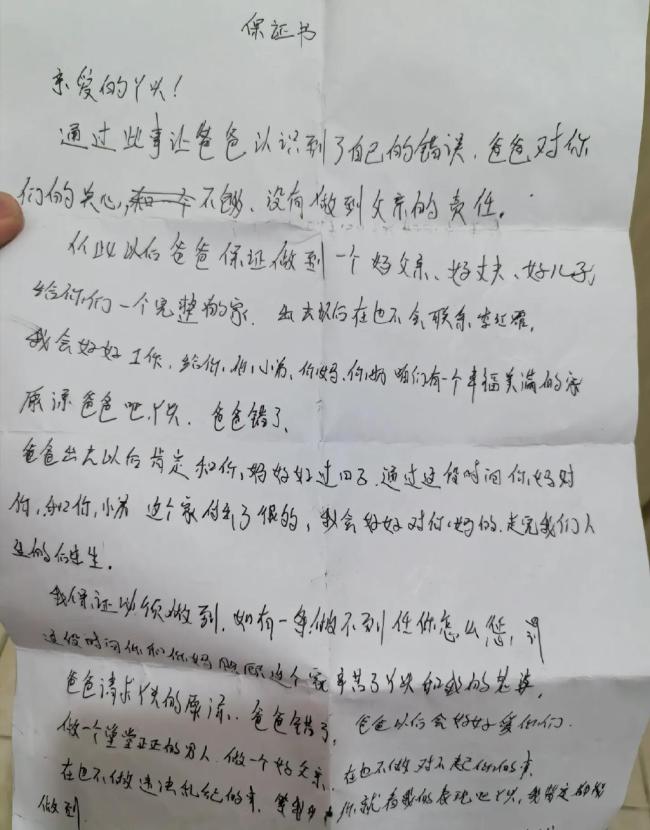 保证书
亲爱的丫头！
通过此事让爸爸认识到了自己的错误.爸爸对你
们的关心,不够、没有做到父亲的责任。
从此以后爸爸保证做到一个好父亲、好丈夫、好儿子,
给你们一个完整的家.出去以后在也不会联系李
我会好好工作,给你,和小弟、你妈、你奶咱们有一个幸福美满的家
原谅爸爸吧丫头.爸爸错了、
爸爸出去以后肯定和你,妈好好过日子.通过这段时间你,妈对
你,和你,小弟 这个家付出了很多,我会好好对你,妈的.走完我们人
生的后半生。
我保证必须做到.如有一事做不到任你怎么
这段时间你和你妈照顾这个家辛苦了丫头和我的老婆,
爸爸请求丫头的原谅.爸爸错了,爸爸以后会好好爱你们.
做一个堂堂正正的男人.做一个好父亲.在也不做对不起你们的事.
在也不做违法乱纪的事.你,就看我的表现吧丫头,我肯定能够
做到